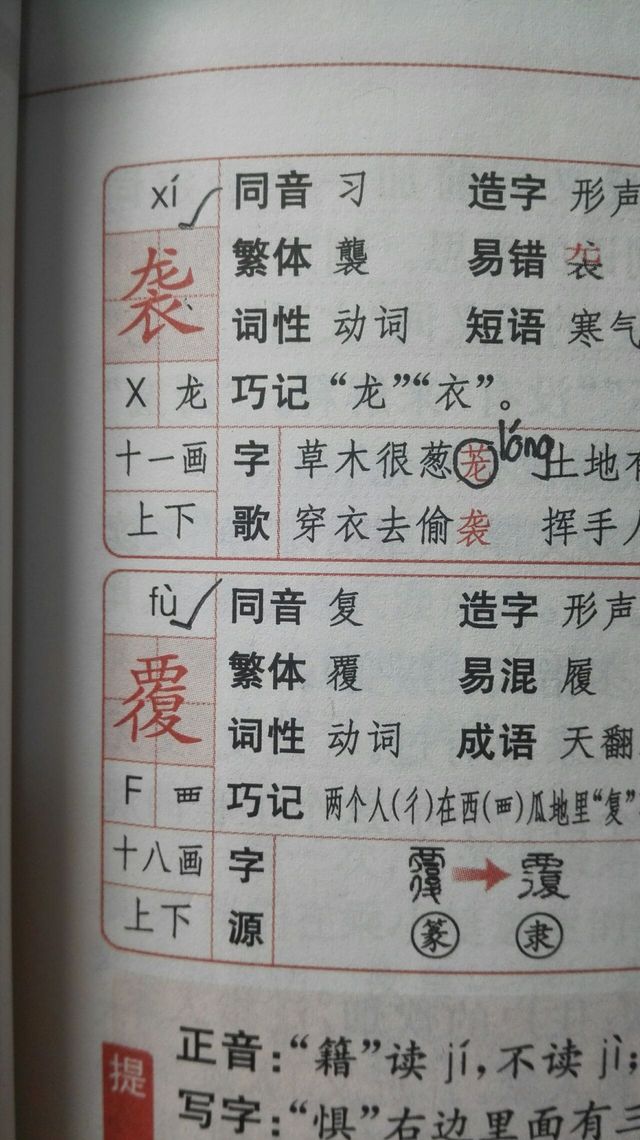 xí 同音 习 造字 形声
袭 繁体 襲 易错
词性 动词 短语 寒气
X 龙 巧记 “龙”“衣”。
lóng
十一画 字 草木很葱茏 土地有
上下 歌 穿衣去偷袭 挥手人
fù 同音 复 造字 形声
覆 繁体 覆 易混 履
词性 动词 成语 天翻
F 覀 巧记 两个人(彳)在西(覀)瓜地里“复”
十八画 字 覆 覆
上下 源 篆 隶
提 正音:“籍”读 jí,不读 jì;
写字:“惧”右边里面有三